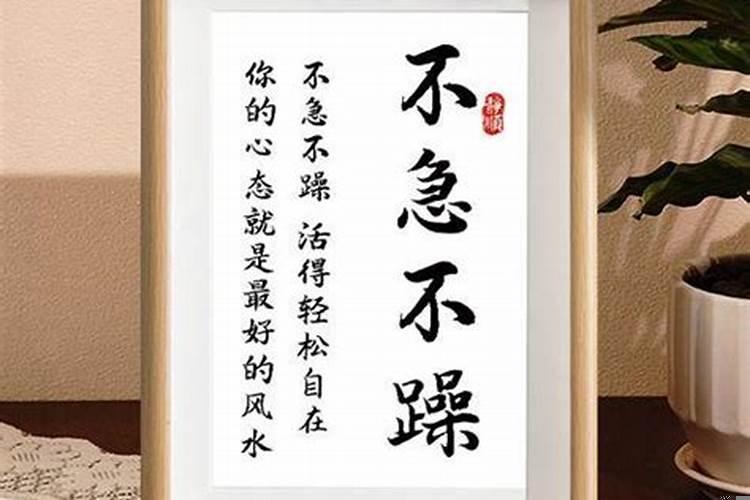 不急不躁
静顺
不急不躁 活得轻松自在
你的心态就是最好的风水